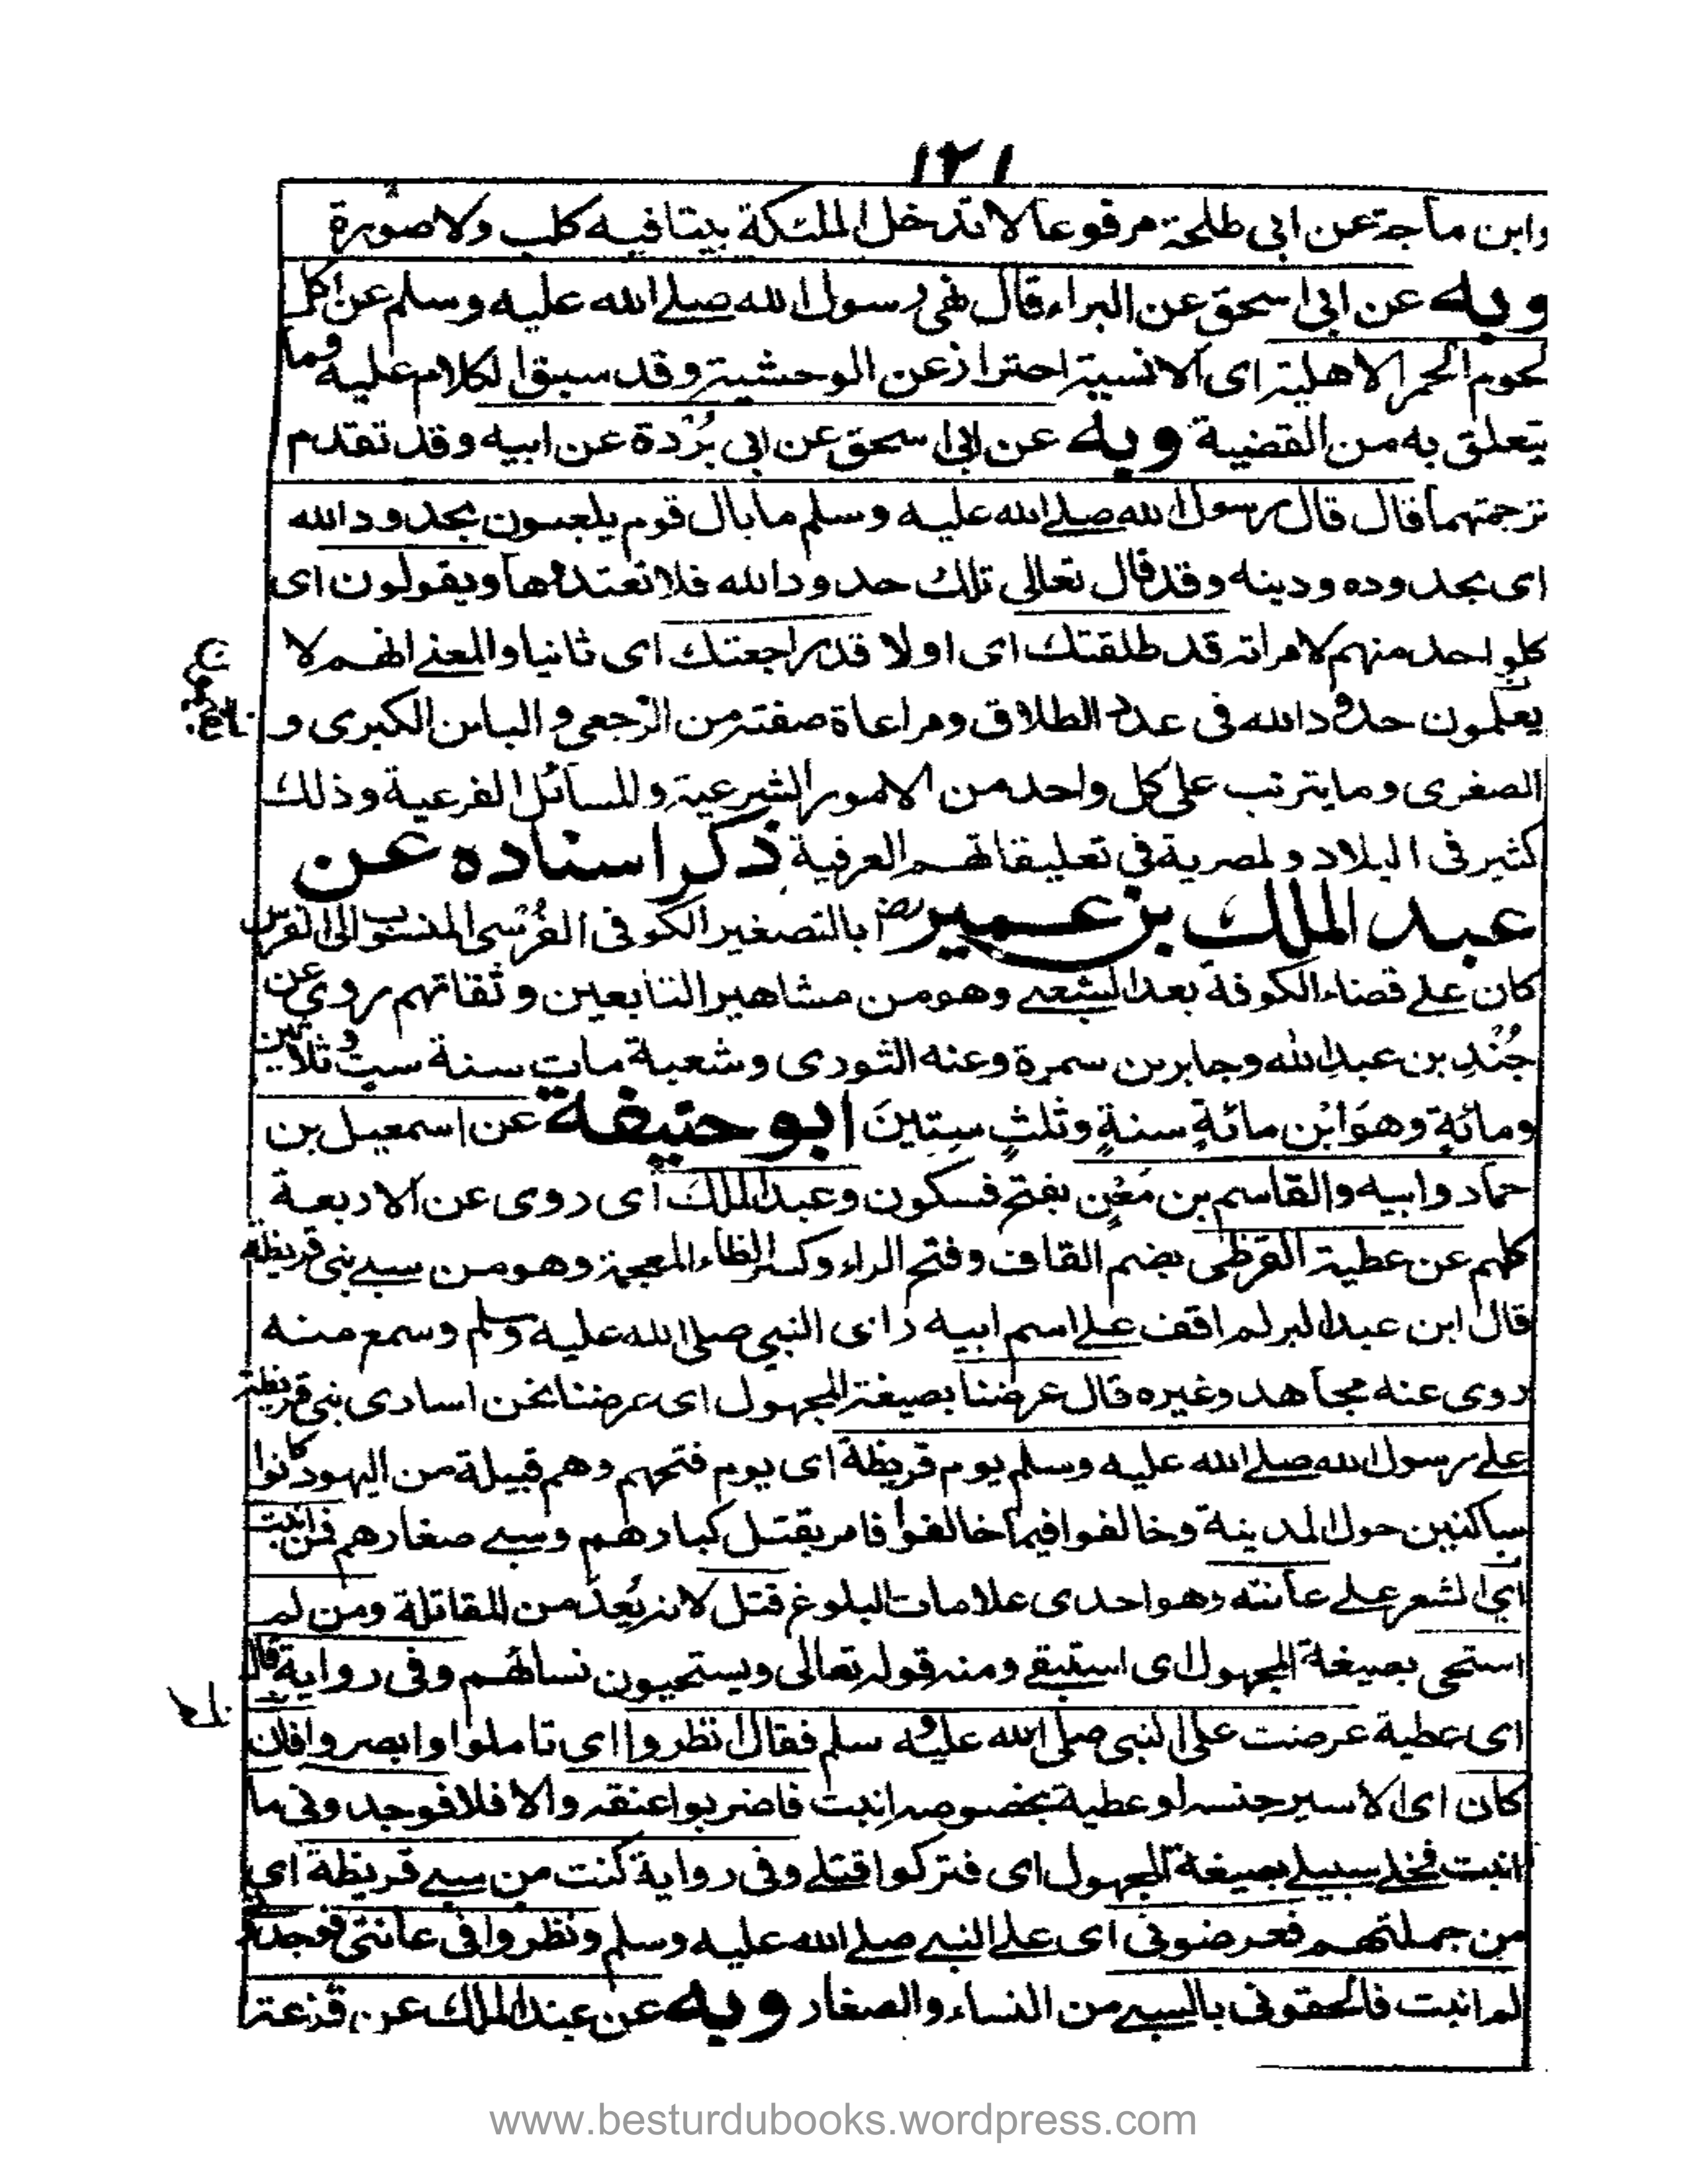 ١٢١
وابن ماجة عن ابی طلحة مرفوعا لا تدخل الملئكة بيتا فيه كلب ولا صورة
وبه عن ابی اسحق عن البراء قال نهی رسول الله صلے الله عليه وسلم عن اكل
لحوم الحمر الاهلية ای الانسية احتراز عن الوحشية وقد سبق الكلام عليه وما
يتعلق به من القضية وبه عن ابی اسحق عن ابی بُرْدة عن ابيه وقد تقدم
ترجمتهما قال قال رسول الله صلے الله عليه وسلم ما بال قوم يلعبون بحدود الله
ای بحدوده ودينه وقد قال تعالی تلك حدود الله فلا تعتدوها ويقولون ای
كلواحد منهم لامراته قد طلقتك ای اولا قد راجعتك ای ثانيا والمعنے انهم لا
يعلمون حدود الله فی عدد الطلاق ومراعاة صفته من الرجعی والباين الكبری و
الصغری وما يترتب علی كل واحد من الامور الشرعية والمسائل الفرعية وذلك
كثير فی البلاد ولمصرية فی تعليقاتهم العرفية ذكر اسناده عن
عبد الملك بن عمير رض بالتصغير الكوفی الفُرْسی المنسوب الی الفرس
كان علے قضاء الكوفة بعد الشعبے وهو من مشاهير التابعين وثقاتهم روی عن
جُنْدِب بن عبد الله وجابر بن سمرة وعنه الثوری وشعبة مات سنة ست وثلاثين
ومائةٍ وهو ابْن مائةٍ سنةٍ وثلثٍ سِتينَ ابو حنيفة عن اسمعيل بن
حماد وابيه والقاسم بن مَعْنٍ بفتح فسكون وعبد الملك ای روی عن الاربعة
كلهم عن عطية القرظی بضم القاف وفتح الراء وكسر الظاء المعجمة وهو من سبے بنی قريظة
قال ابن عبد البر لم اقف علے اسم ابيه رای النبی صلی الله عليه وسلم وسمع منه
روی عنه مجاهد وغيره قال عرضنا بصيغة المجهول ای عرضنا نحن اساری بنی قريظة
علے رسول الله صلے الله عليه وسلم يوم قريظة ای يوم فتحهم وهم قبيلة من اليهود كانوا
ساكنين حول المدينة وخالفوا فيما خالفوا فامر بقتل كبارهم وسبے صغارهم فمن انبت
ای الشعر علے عانته وهو احدی علامات البلوغ قتل لانه يُعدّ من المقاتلة ومن لم
استحی بصيغة المجهول ای استبقے ومنه قوله تعالی ويستحيون نسائهم وفی رواية قال
ای عطية عرضت علی النبی صلی الله عليه وسلم فقال انظروا ای تاملوا وابصروا فان
كان ای الاسير جنسه او عطية بخصوصه انبت فاضربوا عنقه والا فلا فوجدونی ما
انبت فخلے سبيلے بصيغة المجهول ای فتركوا قتلے وفی رواية كنت من سبے قريظة ای
من جملتهم فعرضونی ای علے النبے صلے الله عليه وسلم ونظروا فی عانتی فوجدونی
لم انبت فالحقونی بالسبے من النساء والصغار وبه عن عبد الملك عن قزعة
www.besturdubooks.wordpress.com